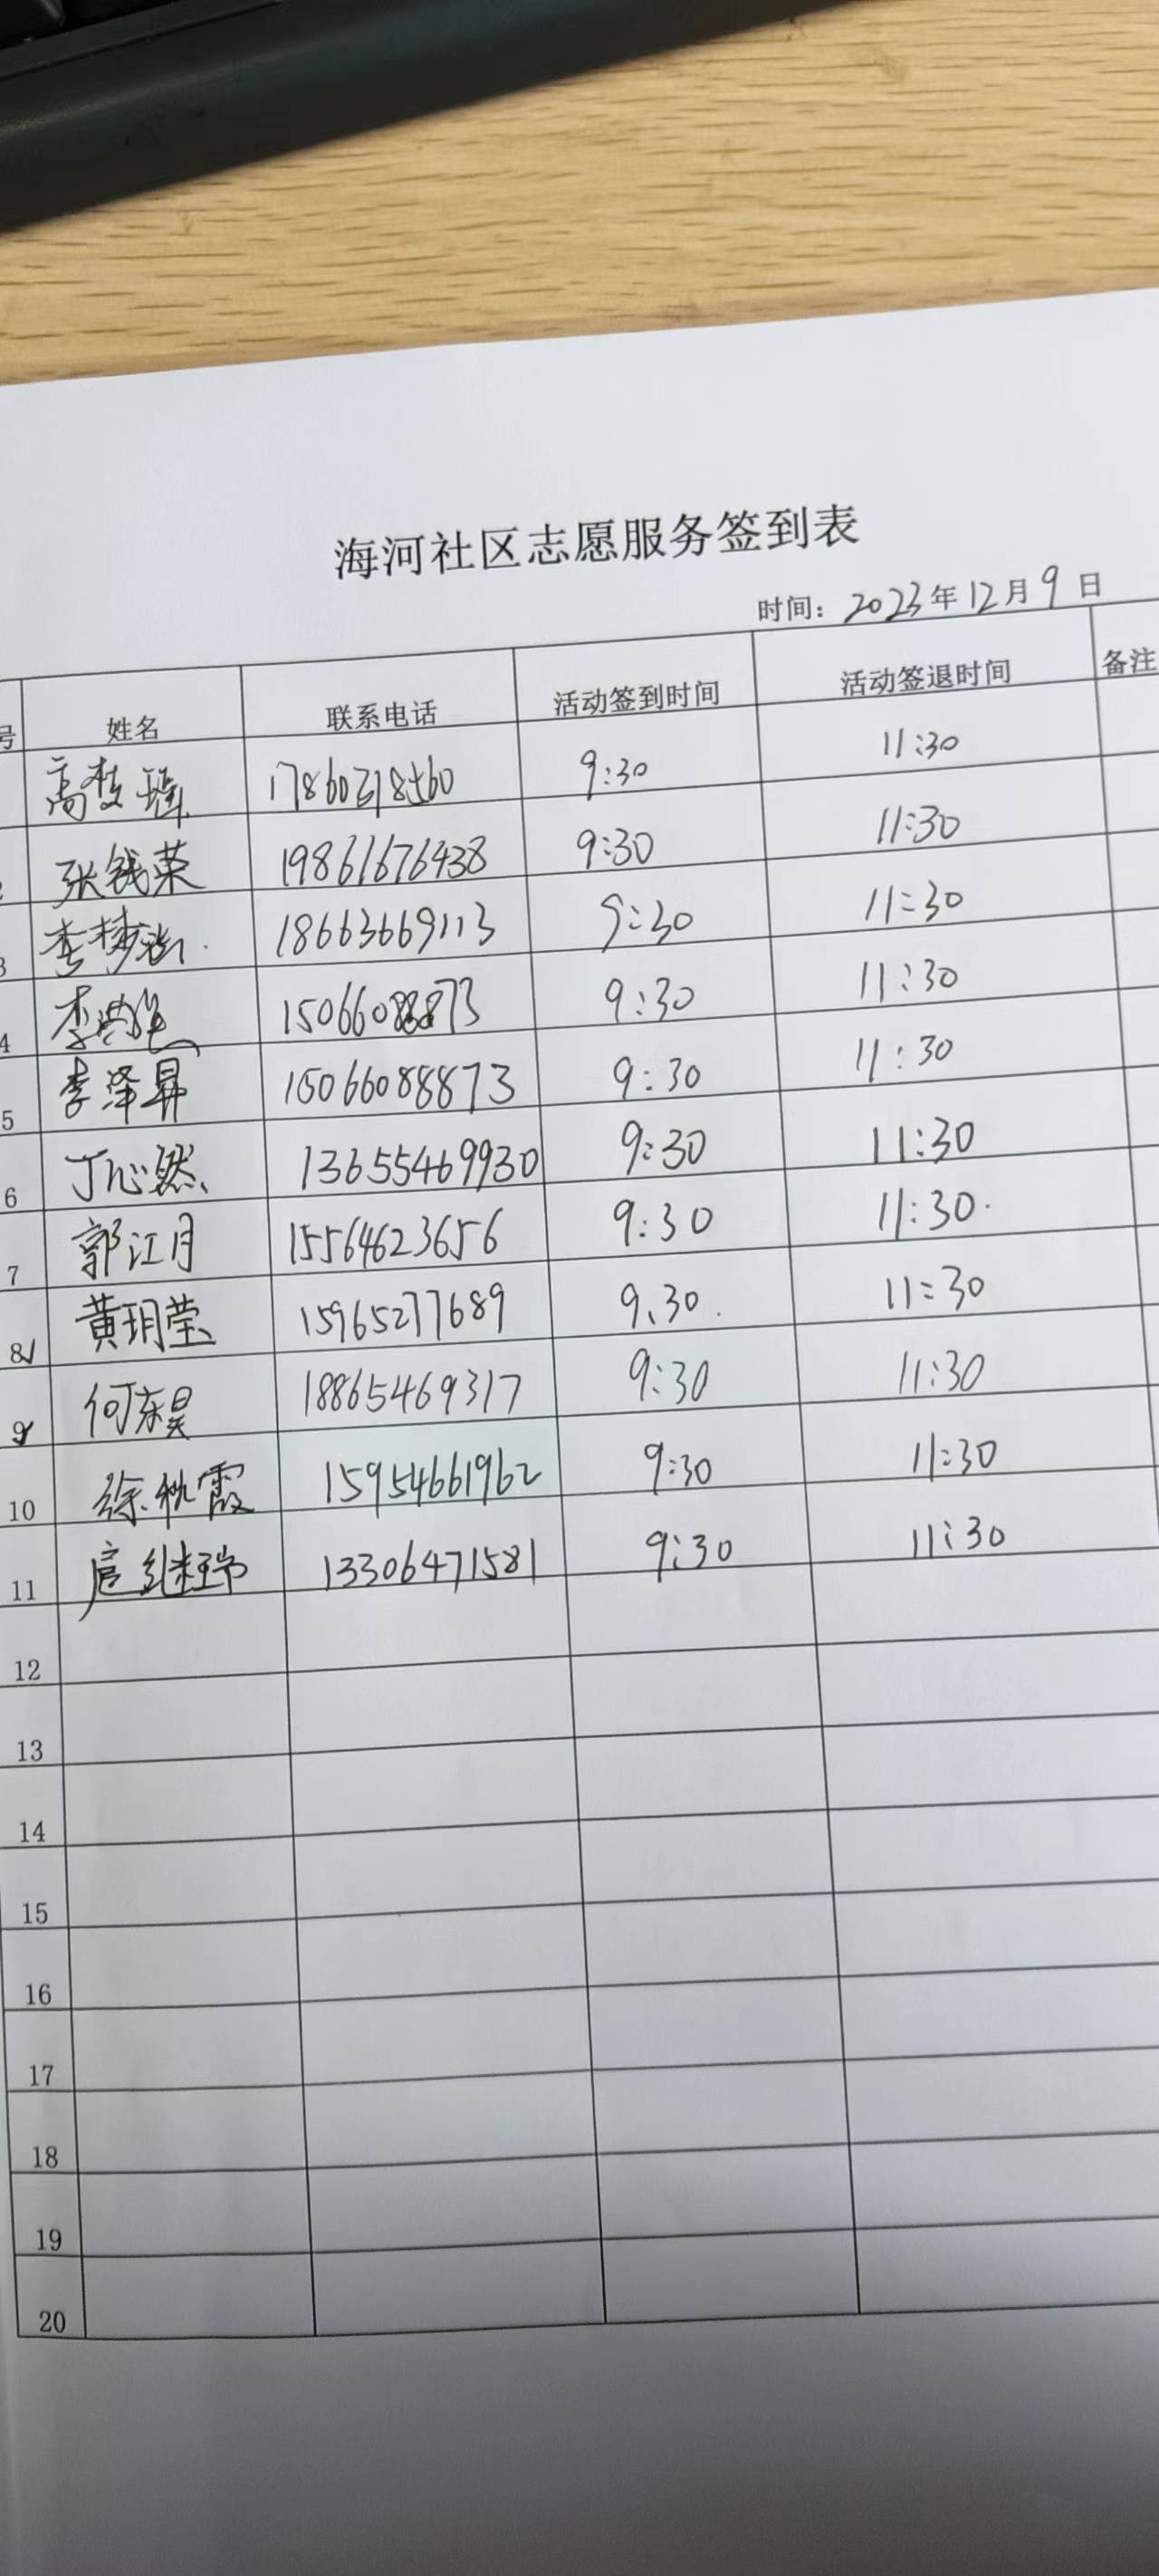 海河社区志愿服务签到表
时间：2023年12月9日
号 姓名 联系电话 活动签到时间 活动签退时间 备注
高梦瑶 17860218560 9:30 11:30
2 张钱荣 19861676438 9:30 11:30
3 李梦 18663669113 9:30 11:30
4 李 15066088873 9:30 11:30
5 李泽昇 15066088873 9:30 11:30
6 丁心然 13655469930 9:30 11:30
7 郭江月 15564623656 9:30 11:30
8 黄玥莹 15965277689 9:30 11:30
9 何东昊 18865469317 9:30 11:30
10 徐秋霞 15954661962 9:30 11:30
11 扈继瑞 13306471581 9:30 11:30
12
13
14
15
16
17
18
19
20